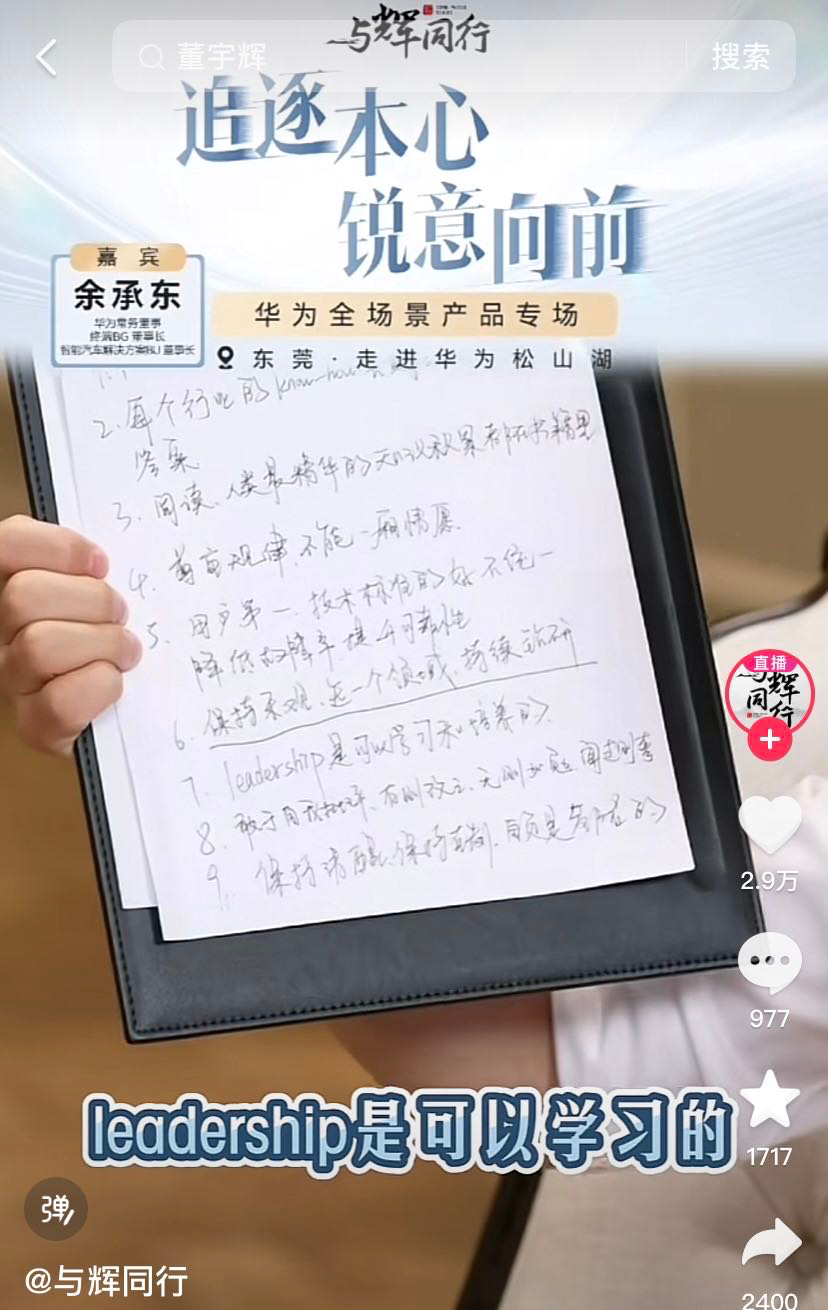 与辉同行
董宇辉
搜索
追逐本心
锐意向前
嘉宾
余承东
华为常务董事
终端BG 董事长
智能汽车解决方案BU 董事长
华为全场景产品专场
东莞·走进华为松山湖
2. 每个行业的know-how
答案
3. 阅读、人类最精华的知识积累都在书籍里
4. 尊重规律,不能一厢情愿
5. 用户第一、技术标准的好不统一
降低故障率提升可靠性
6. 保持乐观、在一个领域、持续钻研
7. leadership是可以学习和培养的
8. 敢于自我批评、有则改之、无则加勉
9. 保持清醒、保持
直播
与辉同行
2.9万
977
leadership是可以学习的
1717
弹
@与辉同行
2400